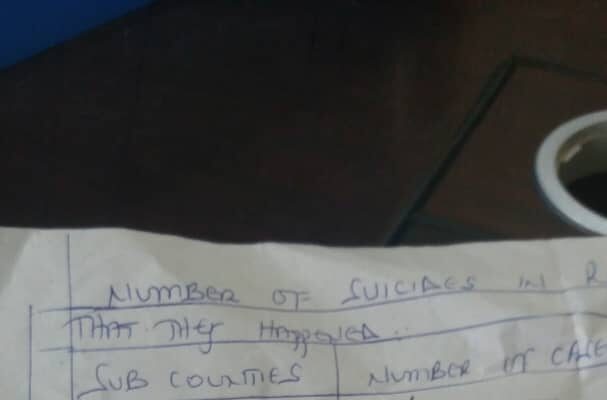 NUMBER OF SUICIDES IN R
THAT THEY HAPPENED..
SUB COUNTIES NUMBER OF CASE